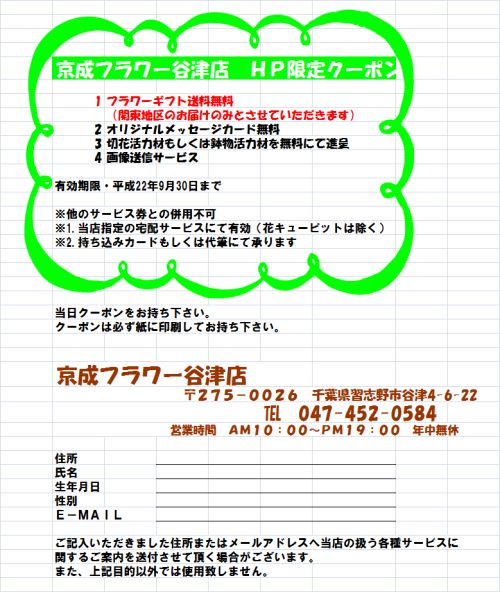 京成フラワー谷津店　ＨＰ限定クーポン
1 フラワーギフト送料無料
（関東地区のお届けのみとさせていただきます）
2 オリジナルメッセージカード無料
3 切花活力材もしくは鉢物活力材を無料にて進呈
4 画像送信サービス
有効期限・平成22年9月30日まで
※他のサービス券との併用不可
※1. 当店指定の宅配サービスにて有効（花キューピットは除く）
※2. 持ち込みカードもしくは代筆にて承ります
当日クーポンをお持ち下さい。
クーポンは必ず紙に印刷してお持ち下さい。
京成フラワー谷津店
〒２７５－００２６　千葉県習志野市谷津4-6-22
TEL　047-452-0584
営業時間　ＡＭ１０：００～ＰＭ１９：００　年中無休
住所
氏名
生年月日
性別
Ｅ－ＭＡＩＬ
ご記入いただきました住所またはメールアドレスへ当店の扱う各種サービスに
関するご案内を送付させて頂く場合がございます。
また、上記目的以外では使用致しません。